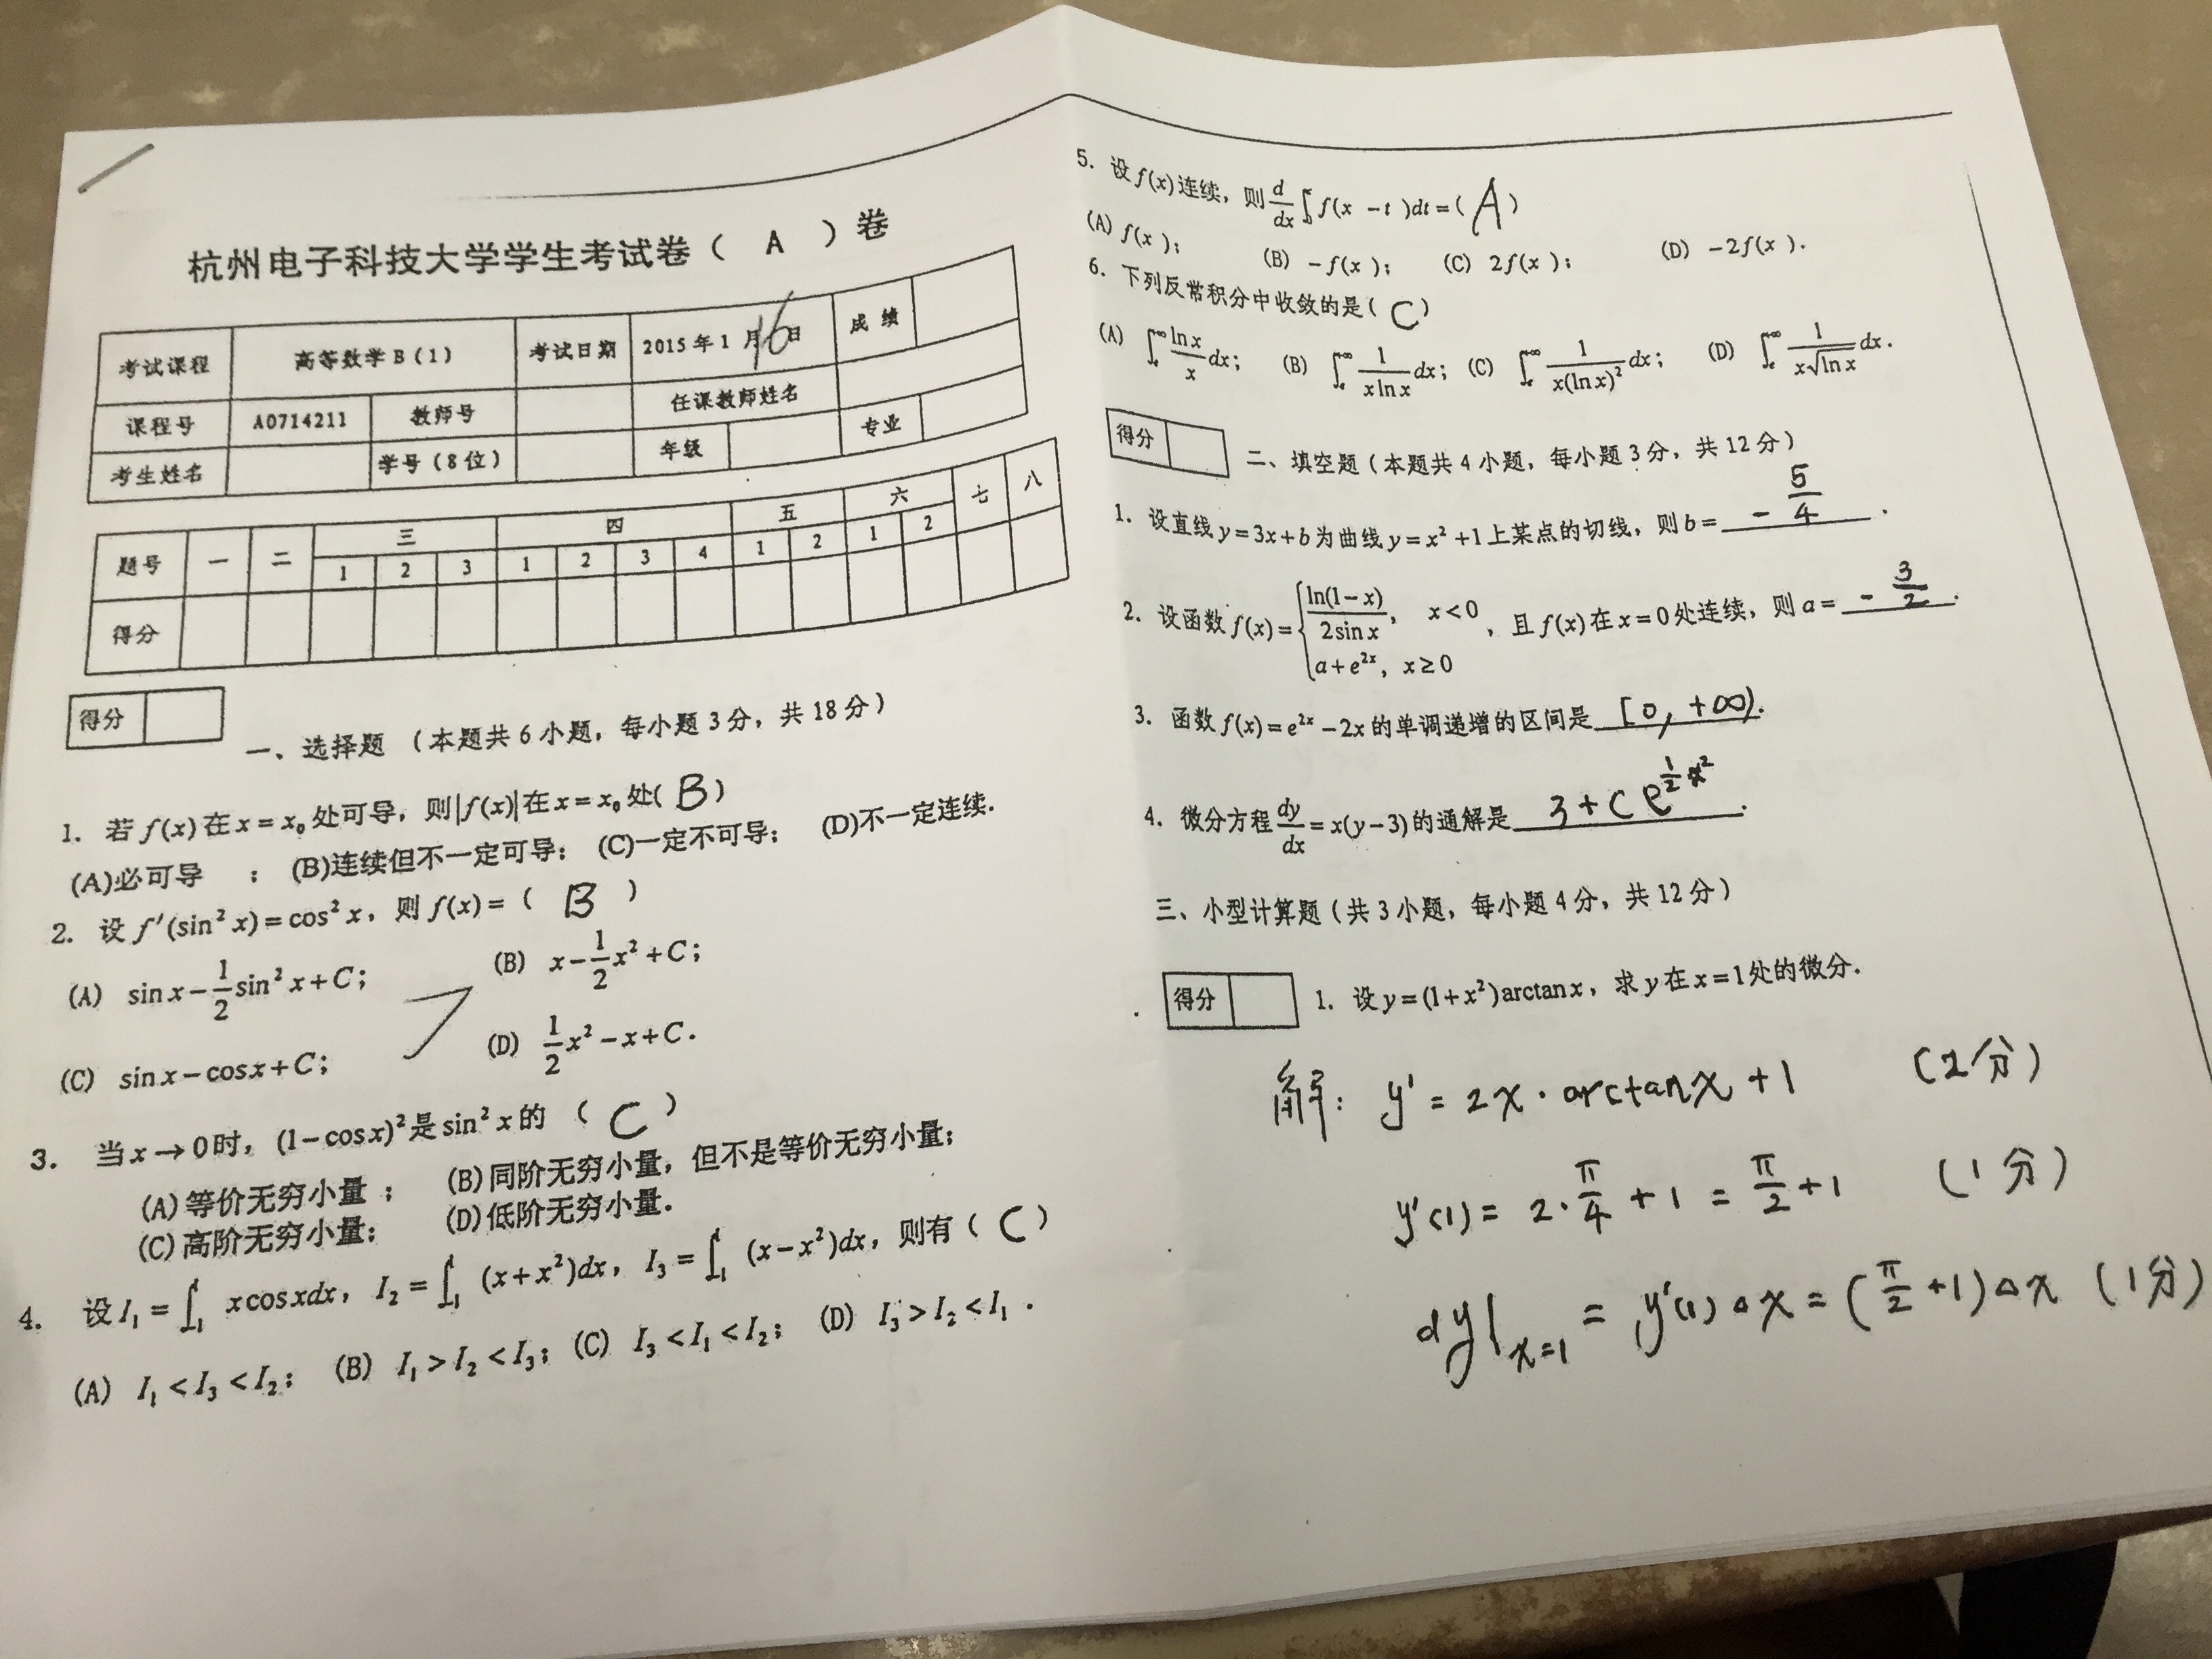 杭州电子科技大学学生考试卷（ A ）卷
考试课程 高等数学B（1） 考试日期 2015年1月16日 成绩
课程号 A0714211 教师号 任课教师姓名
考生姓名 学号（8位） 年级 专业
题号 一 二 三 四 五 六 七 八
1 2 3 1 2 3 4 1 2 1 2
得分
得分
一、选择题 （本题共6小题，每小题3分，共18分）
1. 若 f(x)在 x = x₀处可导，则|f(x)|在 x = x₀处( B )
(A)必可导 ； (B)连续但不一定可导； (C)一定不可导； (D)不一定连续.
2. 设 f′(sin² x) = cos² x，则 f(x) =（ B ）
(A) sin x − 1/2 sin² x + C； (B) x − 1/2 x² + C；
(C) sin x − cos x + C； (D) 1/2 x² − x + C.
3. 当 x → 0时，(1 − cos x)²是sin² x的 （ C ）
(A)等价无穷小量 ； (B)同阶无穷小量，但不是等价无穷小量；
(C)高阶无穷小量； (D)低阶无穷小量.
4. 设 I₁ = ∫₋₁¹ x cos x dx，I₂ = ∫₋₁¹ (x + x²)dx，I₃ = ∫₋₁¹ (x − x²)dx，则有（ C ）
(A) I₁ < I₃ < I₂； (B) I₁ > I₂ < I₃；(C) I₃ < I₁ < I₂； (D) I₃ > I₂ < I₁ .
5. 设 f(x)连续，则 d/dx ∫₀ˣ f(x − t )dt =( A )
(A) f(x )； (B) − f(x )； (C) 2f(x )； (D) −2f(x ).
6. 下列反常积分中收敛的是( C )
(A) ∫ₑ⁺∞ ln x/x dx； (B) ∫ₑ⁺∞ 1/(x ln x) dx；(C) ∫ₑ⁺∞ 1/(x(ln x)²) dx； (D) ∫ₑ⁺∞ 1/(x√(ln x)) dx .
得分
二、填空题（本题共4小题，每小题3分，共12分）
1. 设直线 y = 3x + b 为曲线 y = x² + 1上某点的切线，则 b = − 5/4 .
2. 设函数 f(x) = { ln(1 − x)/(2sin x), x < 0
a + e²ˣ, x ≥ 0 ，且 f(x)在 x = 0处连续，则 a = − 3/2 .
3. 函数 f(x) = e²ˣ − 2x的单调递增的区间是 [0, +∞).
4. 微分方程 dy/dx = x(y − 3)的通解是 3 + C e^(1/2 x²) .
三、小型计算题（共3小题，每小题4分，共12分）
得分
1. 设 y = (1 + x²)arctan x，求 y 在 x = 1处的微分.
解： y' = 2x · arctanx + 1 (2分)
y'(1) = 2·π/4 + 1 = π/2 + 1 (1分)
dy|x=1 = y'(1)△x = (π/2 + 1)△x (1分)